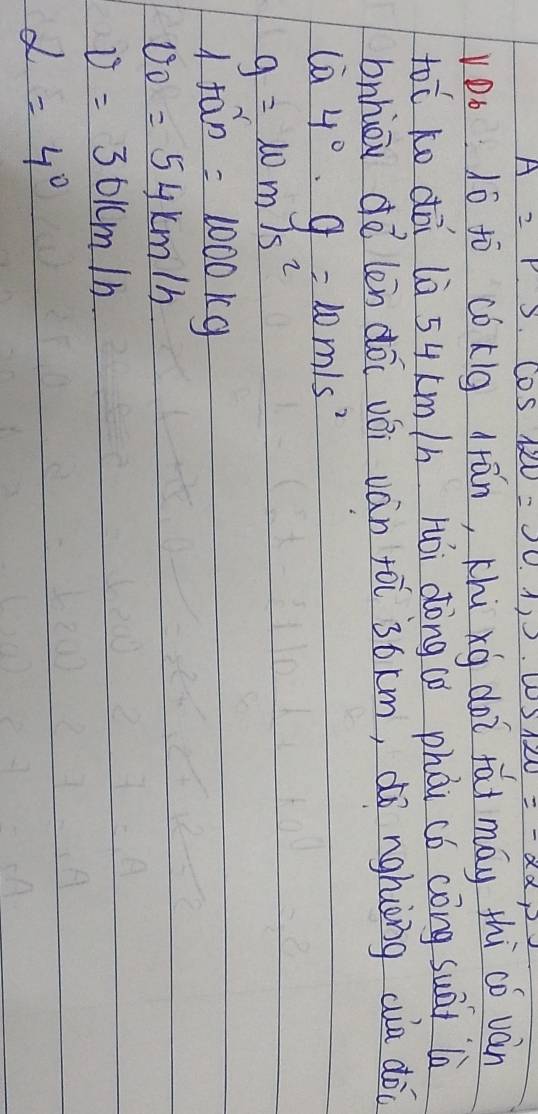 A = P.S. cos 120 = 30. 1,5. cos 120 = -22,5
VD6: 1ô tô có klg 1 tấn, khi xg dốc tắt máy thì có vận
tốc ko đổi là 54 km/h. Hỏi động cơ phải có công suất là
bnhiêu để lên dốc với vận tốc 36km, độ nghiêng của dốc
là 4°. g = 10m/s²
g = 10 m/s²
1 tấn = 1000 kg
v₀ = 54 km/h
v = 36km/h
α = 4°